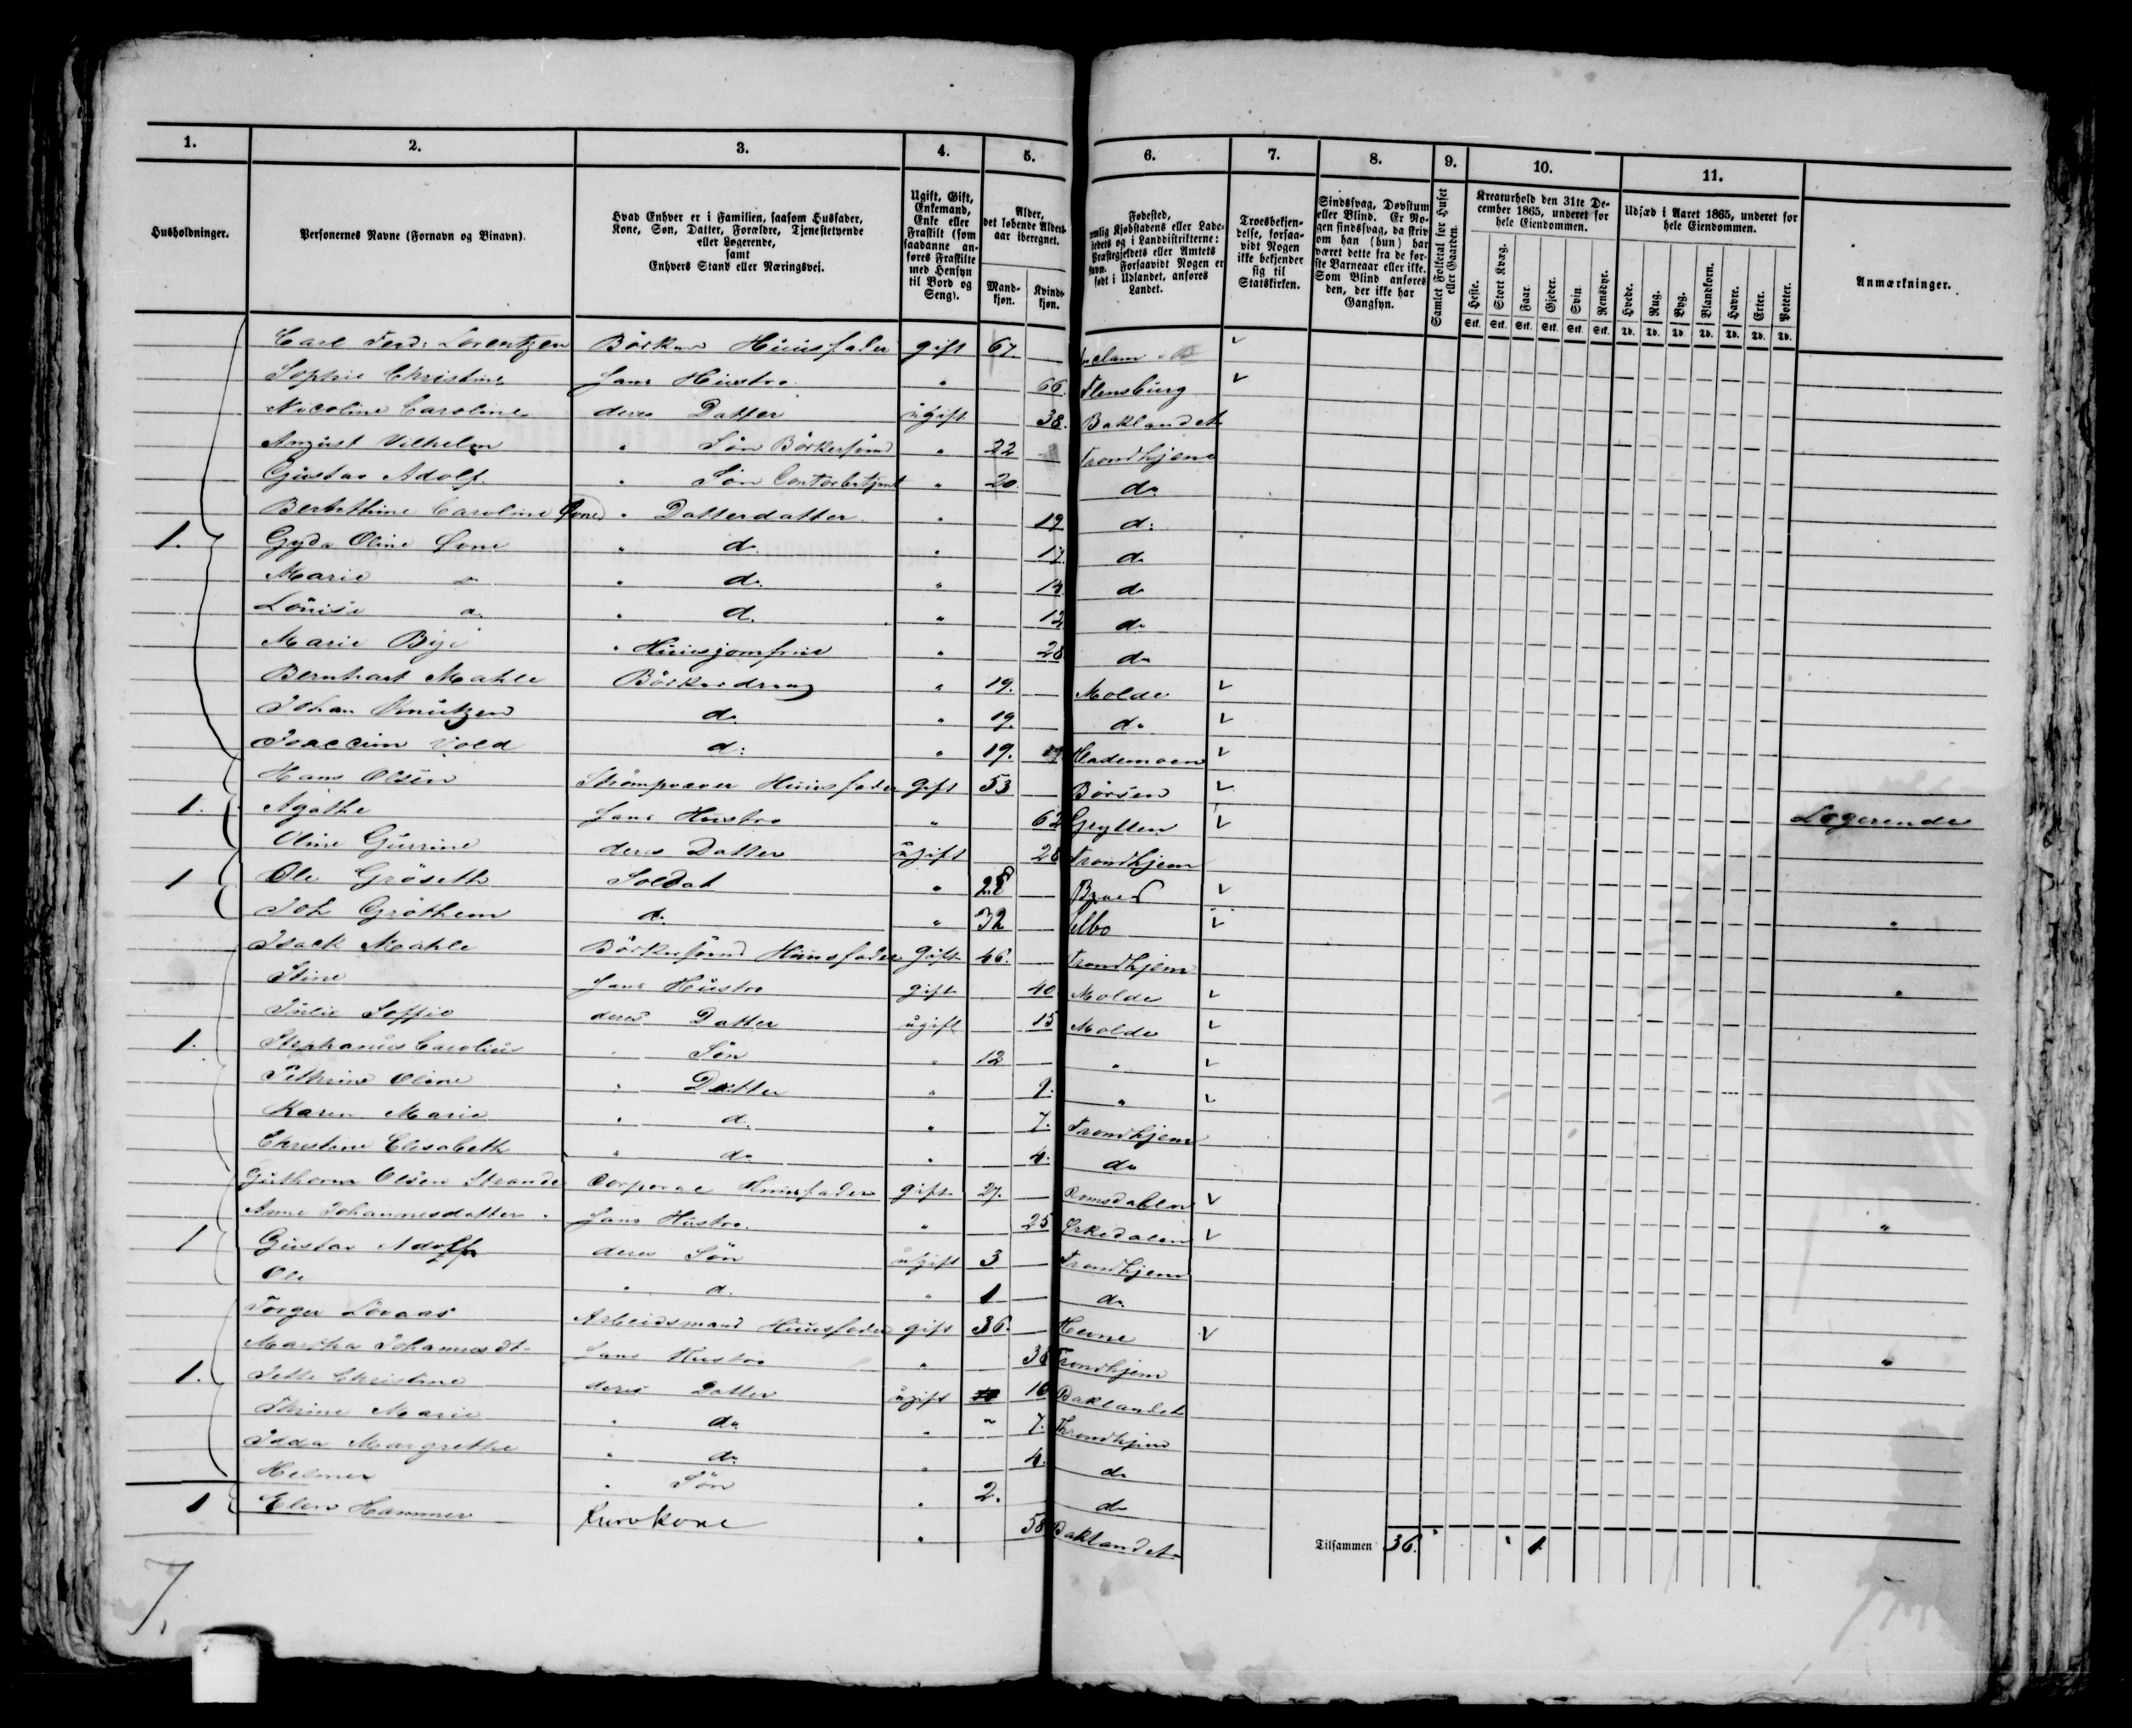 1. 2. 3. 4. 5. 6. 7. 8. 9. 10. 11.
Husholdninger.
Personernes Navne (Fornavn og Binavn).
Hvad Enhver er i Familien, saasom Husfader, Kone, Søn, Datter, Forældre, Tjenestetyende eller Logerende, samt Enhvers Stand eller Næringsvei.
Ugift, Gift, Enkemand, Enke eller Fraskilt (som saadanne anføres Fraskilte med Hensyn til Bord og Seng).
Alder, det løbende Alders-aar iberegnet.
Mand-kjøn. Kvinde-kjøn.
Fødested, nemlig Kjøbstadens eller Ladestedets og i Landdistrikterne: Præstegjeldets eller Amtets Navn. Forsaavidt Nogen er født i Udlandet, anføres Landet.
Troesbekjendelse, forsaavidt Nogen ikke bekjender sig til Statskirken.
Sindssvag, Døvstum eller Blind. Er Nogen sindssvag, da skriv om han (hun) har været dette fra de første Barneaar eller ikke. Som Blind anføres den, der ikke har Gangsyn.
Samlet Folketal for Huset eller Gaarden.
Kreaturhold den 31te December 1865, underet for hele Eiendommen.
Heste. Stort Kvæg. Faar. Gjeder. Svin. Rensdyr.
Udsæd i Aaret 1865, underet for hele Eiendommen.
Hvede. Rug. Byg. Blandkorn. Havre. Erter. Poteter.
Anmærkninger.
Carl Ferd: Lorentzen Bøkker Huusfader gift 67.
Sophie Christine Hans Hustro " 66. Flensburg
Nicoline Caroline deres Datter ugift 38. Baklandet
August Vilhelm " Søn Bøkkersvend " 22 Trondhjem
Gustav Adolf " Søn Contorbetjent " 20. do
Berhethine Caroline " Datterdatter " 19 d:
1. Gyda Oline " do " 17. do
Marie do " do. " 14 do
Louise do " d. " 12 do
Marie " Huusjomfrue " 28 do
Bernhart Mahle Bøkkerdreng " 19. Molde
Johan Knutzen do " 19. do
Joaccim Vold d: " 19. Hademoen
Hans Olsen Strømpvæver Huusfader gift 53 Børsen
1. Agathe Hans Hustro " 62 Grytten Logerende
Oline Gurine deres Datter ugift 28 Trondhjem
1 Ole Grøseth Soldat " 28
Joh Grøthem d. " 32 "
Isack Mahle Bøkkersvend Huusfader gift 46. Trondhjem
Stine Hans Hustro gift 40 Molde "
Julie Soffie deres Datter ugift 15 Molde
1. Stephanus Carolius " Søn " 12 "
Pethrine Oline " Datter " 9. "
Karen Marie " d. " 7. Trondhjem
Christine Elisabeth " do " 4. do
Guthorm Olsen Strande Corporal Huusfader gift 27. Romsdahlen
Anne Johannesdatter Hans Hustro. " 25 Orkedalen "
1 Gustav Adolf deres Søn ugift 3 Trondhjem
Ole " d. " 1 do.
Torger Løvaas Arbeidsmand Huusfader gift 36. Hevne
Martha Johannesdt. Hans Hustro " 36 Trondhjem "
1. Jette Christine deres Datter ugift 10 Baklandet
Thrine Marie " do " 7. Throndhjem
Idda Margrethe " do " 4. do
Helmer " Søn " 2. do
1 Elen Hammer " 58 Baklandet
Tilsammen 36. 1
7.